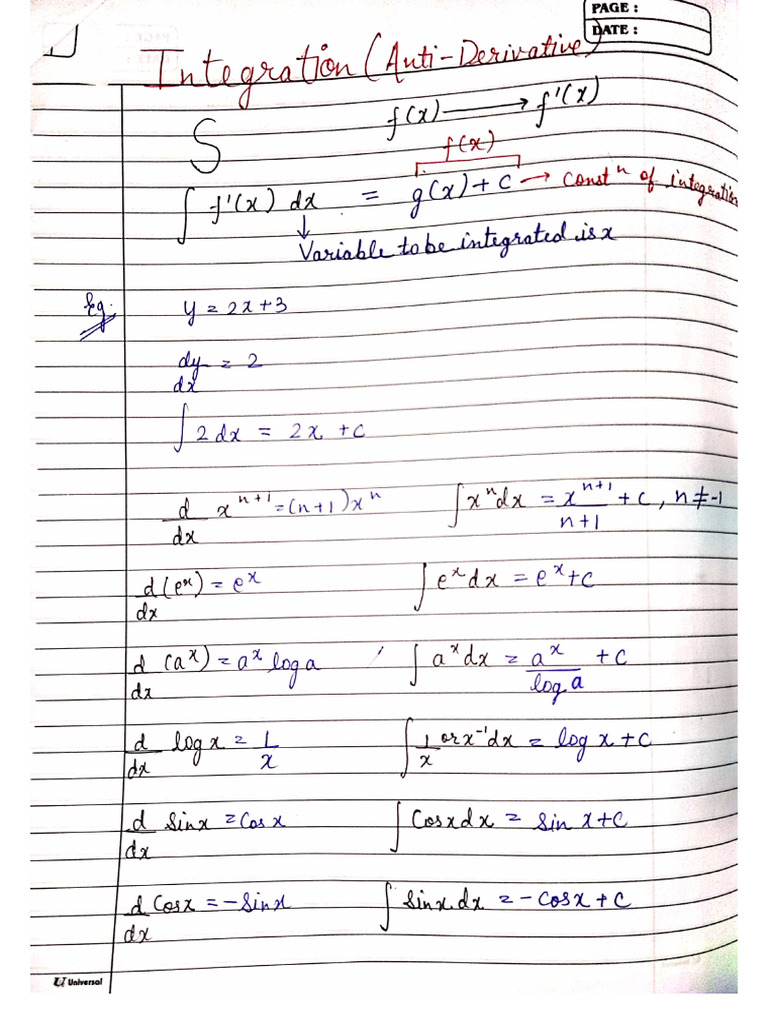 PAGE :
DATE :
Integration (Anti-Derivative)
f(x) ⟶ f'(x)
S
f(x)
∫ f'(x) dx = g(x) + c → Constⁿ of integration
↓
Variable to be integrated is x
Eg. y = 2x+3
dy/dx = 2
∫ 2 dx = 2x + c
d/dx xⁿ⁺¹ = (n+1)xⁿ ∫ xⁿdx = xⁿ⁺¹/n+1 + c, n ≠ -1
d/dx (eˣ) = eˣ ∫ eˣdx = eˣ+c
d/dx (aˣ) = aˣ log a ∫ aˣdx = aˣ/log a + c
d/dx log x = 1/x ∫ 1/x or x⁻¹dx = log x + c
d/dx Sinx = Cos x ∫ Cosx dx = Sin x + c
d/dx Cosx = -Sinx ∫ Sinx.dx = - Cosx + c
U Universal